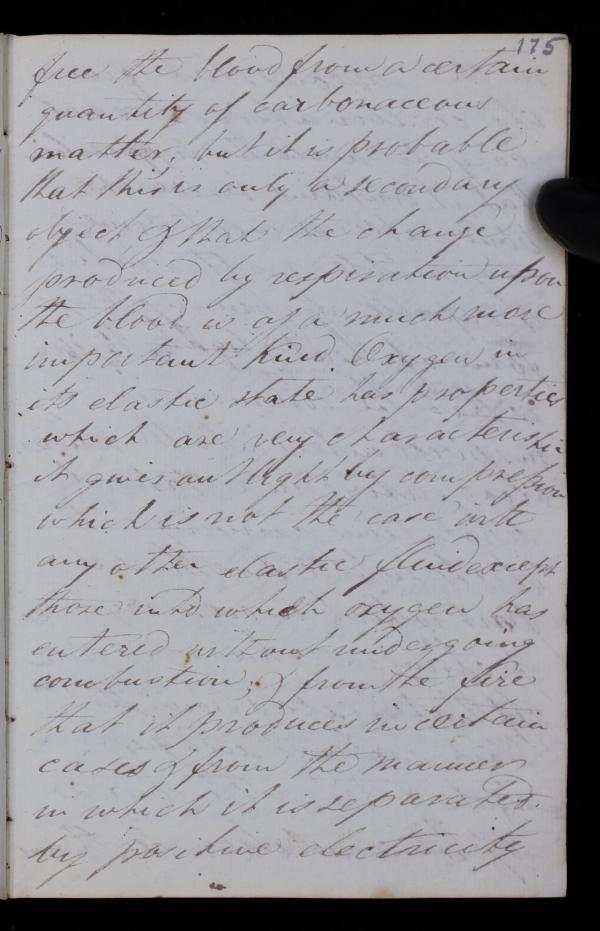 175
free the blood from a certain
quantity of carbonaceous
matter, but it is probable
that this is only a secondary
object & that the change
produced by respiration upon
the blood is of a much more
important kind Oxygen in
its elastic state has properties
which are very characteristic
it gives out light by compression
which is not the case with
any other elastic fluid except
those into which oxygen has
entered without undergoing
combustion, & from the fire
that it produces in certain
cases & from the manner
in which it is separated.
by positive electricity